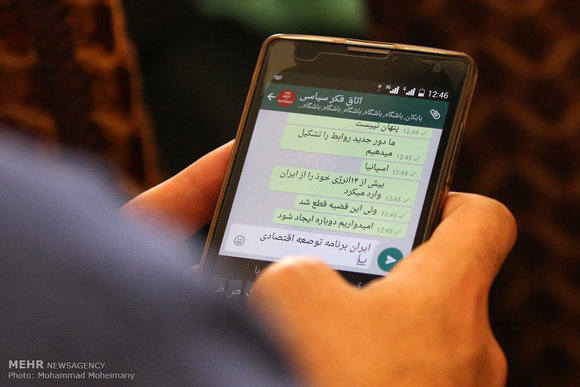 12:46
اتاق فکر سیاسی
بایگان, باشگاه, باشگاه, باشگاه, باشگاه, باشگاه_
پنهان نییست
12:44
ما دور جدید روابط را تشکیل
میدهیم
12:45
اسپانیا
12:45
بیش از ۱۴انرژی خود را از ایران
وارد میکرد
12:45
ولی این قضیه قطع شد
12:45
امیدواریم دوباره ایجاد شود
12:45
ایران برنامه توصعه اقتصادی
MEHR NEWSAGENCY
Photo: Mohammad Moheimany